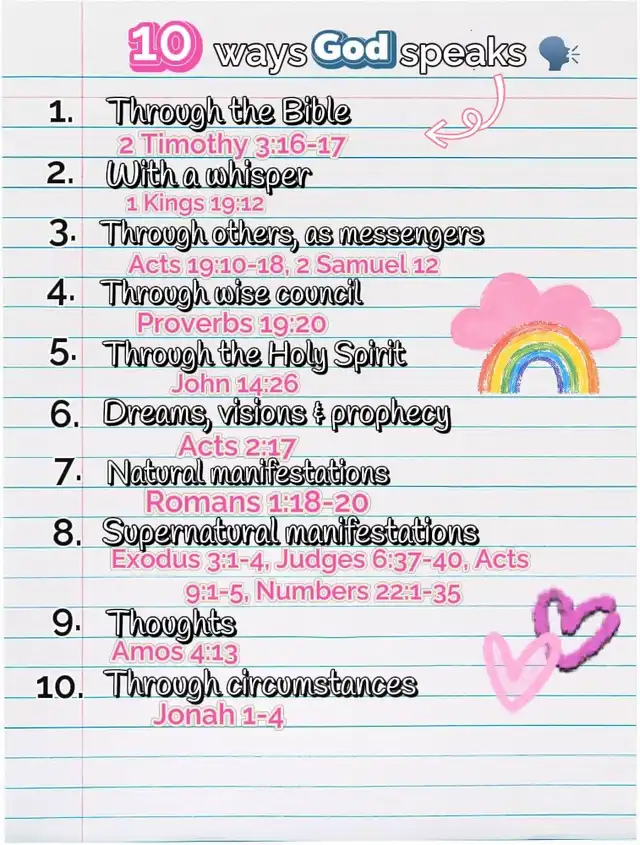 10 ways God speaks
1. Through the Bible
2 Timothy 3:16-17
2. With a whisper
1 Kings 19:12
3. Through others, as messengers
Acts 19:10-18, 2 Samuel 12
4. Through wise council
Proverbs 19:20
5. Through the Holy Spirit
John 14:26
6. Dreams, visions & prophecy
Acts 2:17
7. Natural manifestations
Romans 1:18-20
8. Supernatural manifestations
Exodus 3:1-4, Judges 6:37-40, Acts
9:1-5, Numbers 22:1-35
9. Thoughts
Amos 4:13
10. Through circumstances
Jonah 1-4